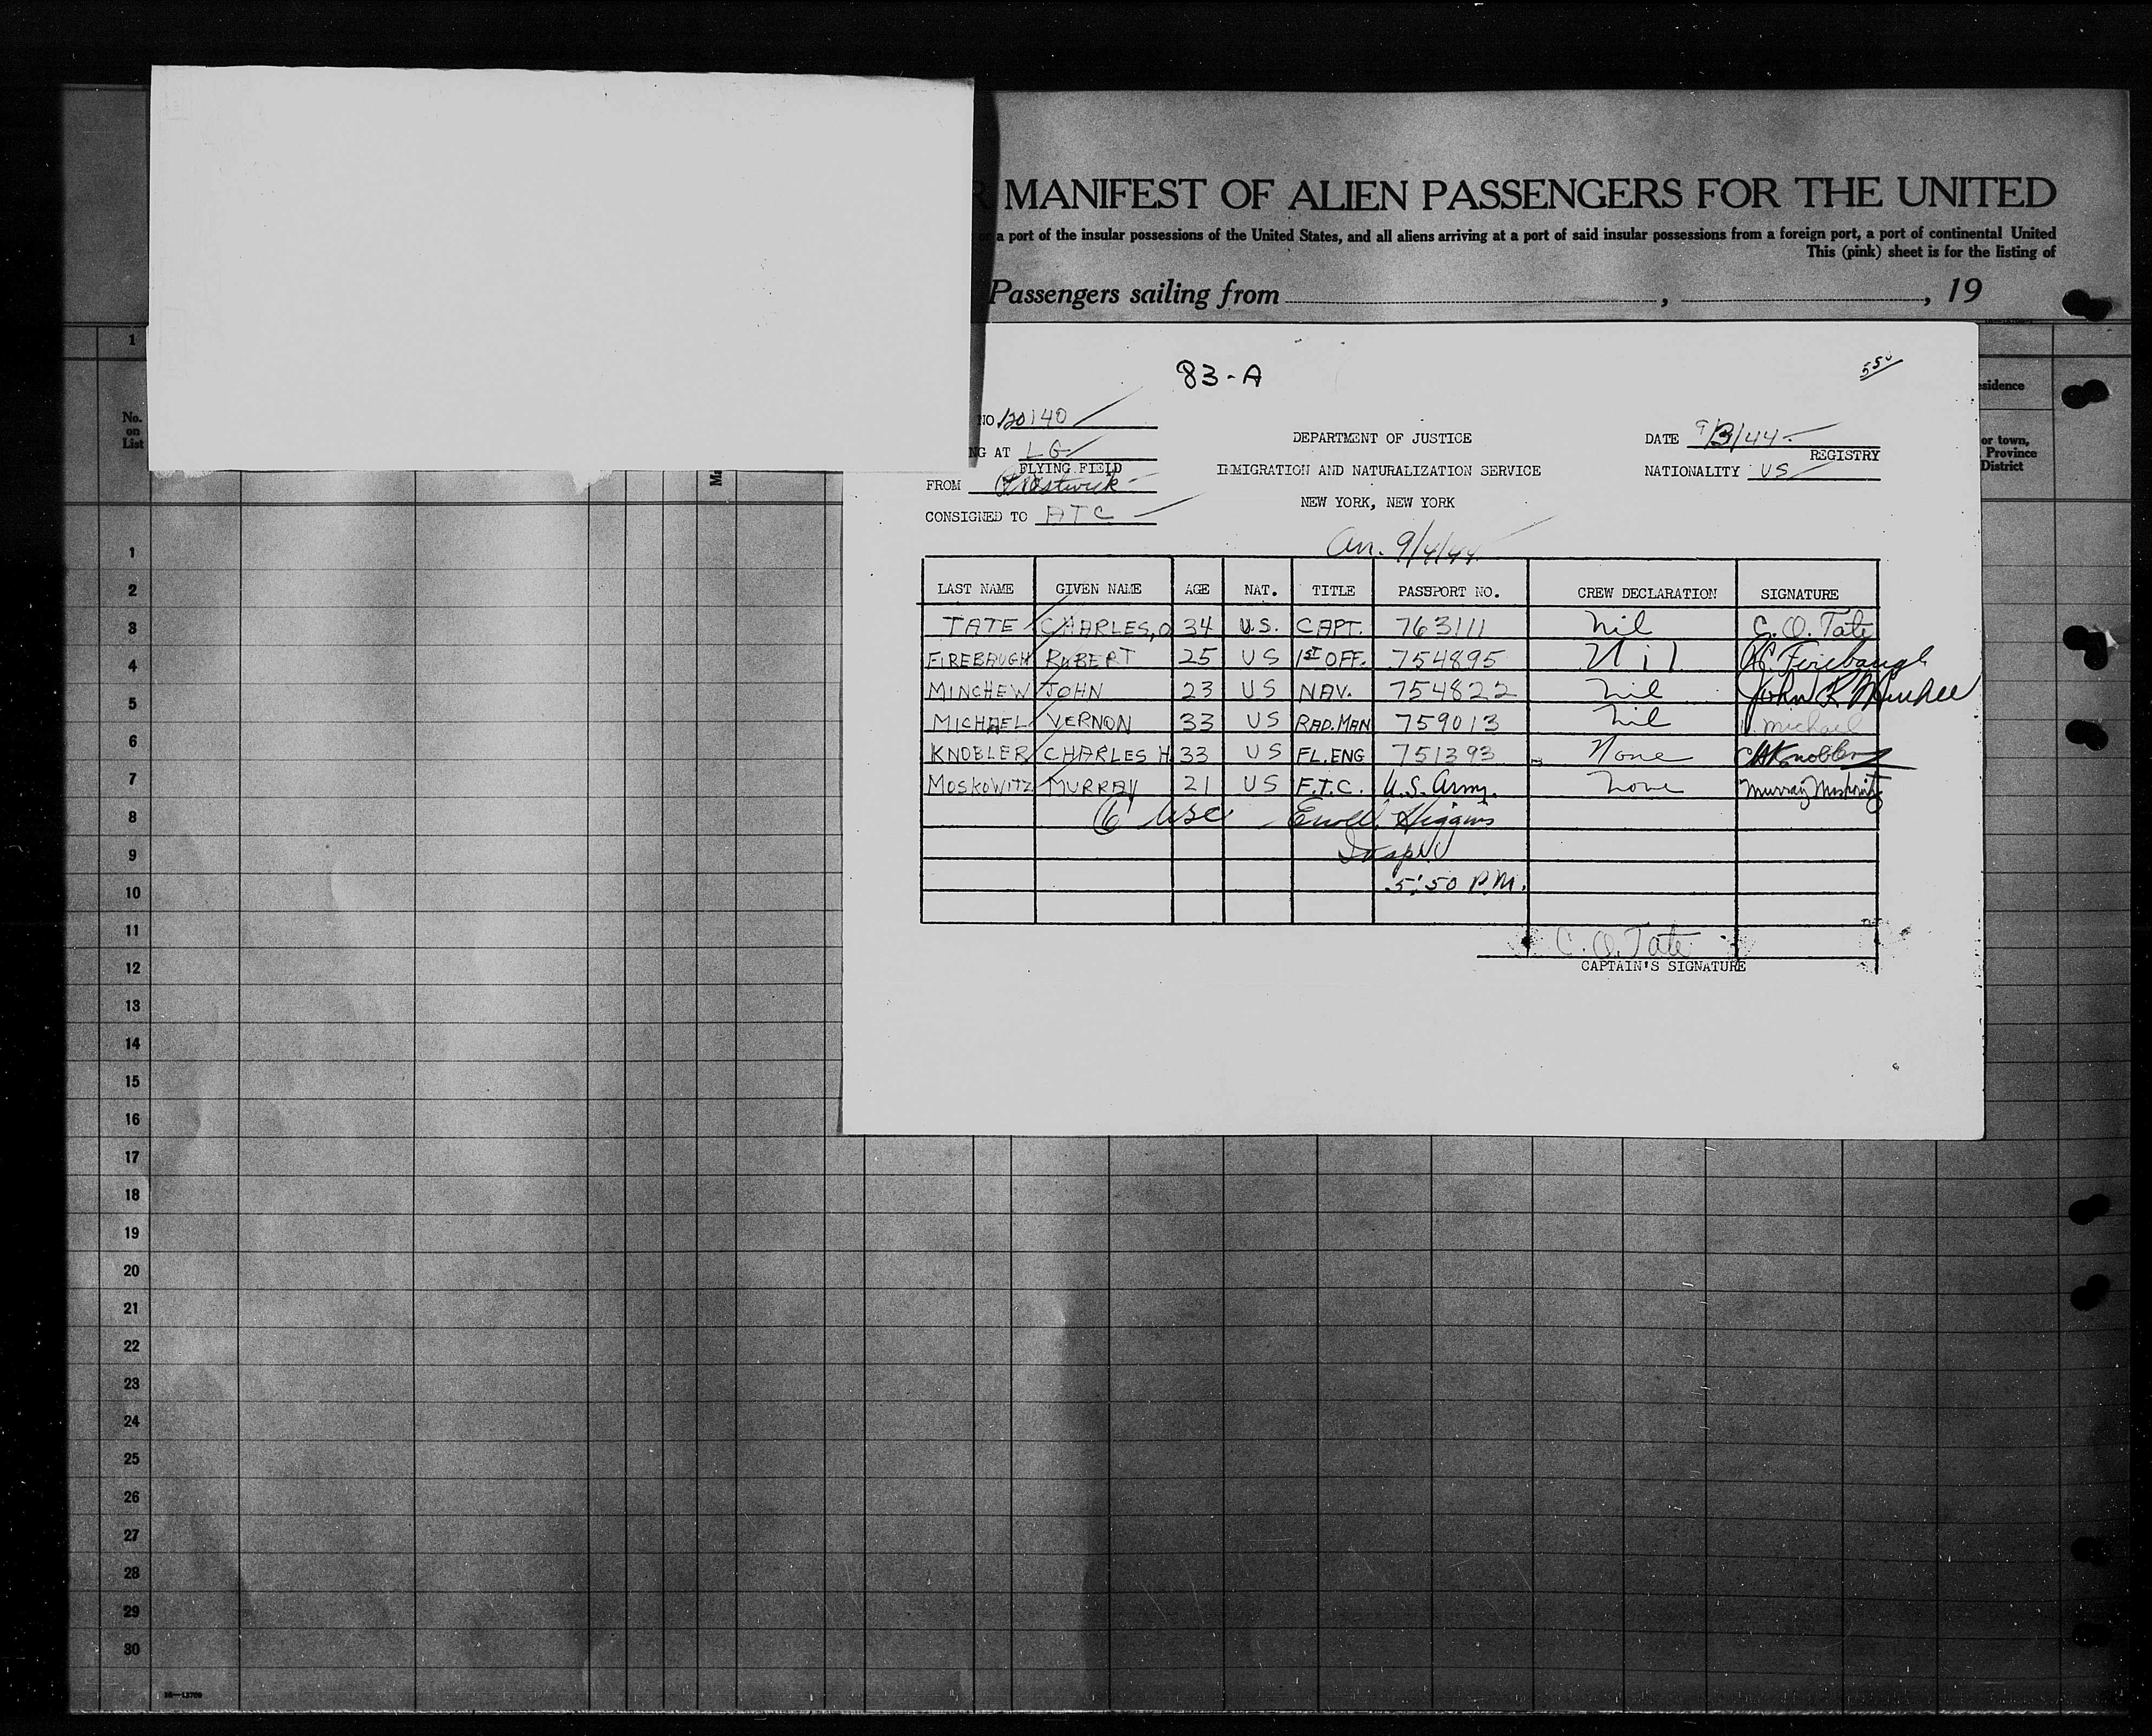 MANIFEST OF ALIEN PASSENGERS FOR THE UNITED
a port of the insular possessions of the United States, and all aliens arriving at a port of said insular possessions from a foreign port, a port of continental United
This (pink) sheet is for the listing of
Passengers sailing from , , 19
1
No. on List
sidence
or town, Province District
83-A
5 50
NO 120140
NG AT LG
FLYING FIELD
FROM Prestwick
CONSIGNED TO ATC
DEPARTMENT OF JUSTICE
IMMIGRATION AND NATURALIZATION SERVICE
NEW YORK, NEW YORK
DATE 9/3/44
REGISTRY
NATIONALITY US
Arr. 9/4/44
LAST NAME GIVEN NAME AGE NAT. TITLE PASSPORT NO. CREW DECLARATION SIGNATURE
TATE CHARLES, O 34 U.S. CAPT. 763111 Nil C. O. Tate
FIREBAUGH ROBERT 25 US 1ST OFF. 754895 Nil Firebaugh
MINCHEW JOHN 23 US NAV. 754822 Nil John R Minchew
MICHAEL VERNON 33 US RAD.MAN 759013 Nil V. Michael
KNOBLER CHARLES H 33 US FL.ENG 751393 None CH Knobler
MOSKOWITZ MURRAY 21 US F.T.C. U.S. Army. None Murray Moskowitz
6 USC Higgins
Insp
5:50 P.M.
C. O. Tate
CAPTAIN'S SIGNATURE
1
2
3
4
5
6
7
8
9
10
11
12
13
14
15
16
17
18
19
20
21
22
23
24
25
26
27
28
29
30